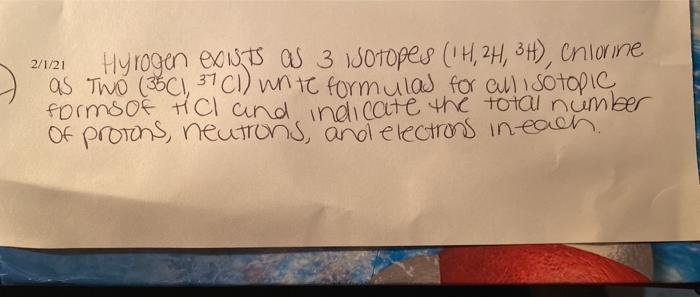 2/1/21 Hyrogen exists as 3 isotopes (¹H, 2H, ³H), Chlorine
as Two (35Cl, 37Cl) write formulas for all isotopic
forms of HCl and indicate the total number
of protons, neutrons, and electrons in each.